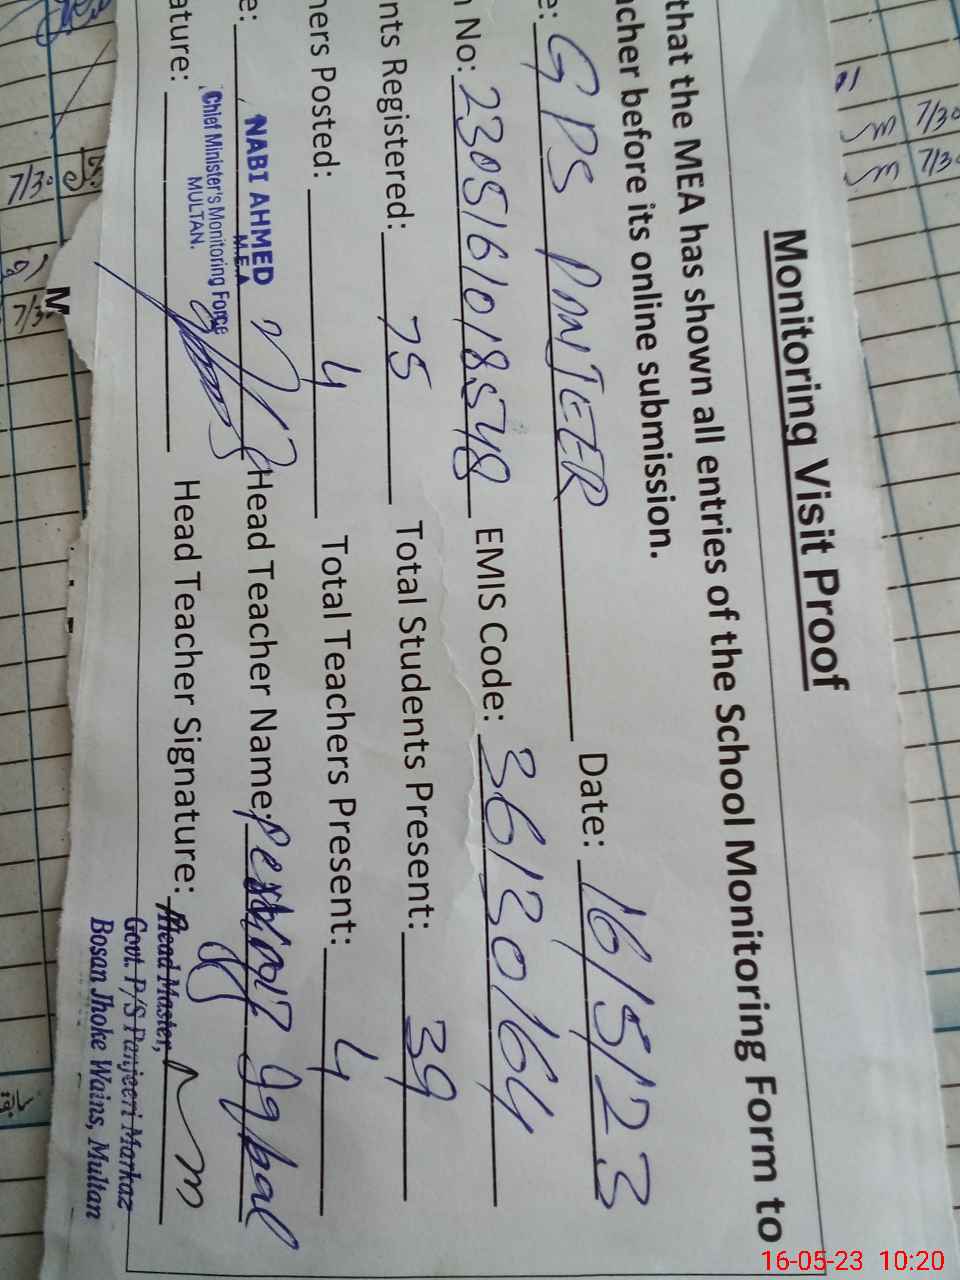 Monitoring Visit Proof
that the MEA has shown all entries of the School Monitoring Form to
acher before its online submission.
e: GPS PANJEERI Date: 16/5/23
n No: 2305161018548 EMIS Code: 36130164
nts Registered: 75 Total Students Present: 39
hers Posted: 4 Total Teachers Present: 4
e: NABI AHMED Head Teacher Name: Iqbal
M.E.A
Chief Minister's Monitoring Force
MULTAN.
ature: Head Teacher Signature:
Head Master,
Govt. P/S Panjeeri Markaz
Bosan Jhoke Wains, Multan
M
7/30
7/30
7/30
7/30
16-05-23 10:20